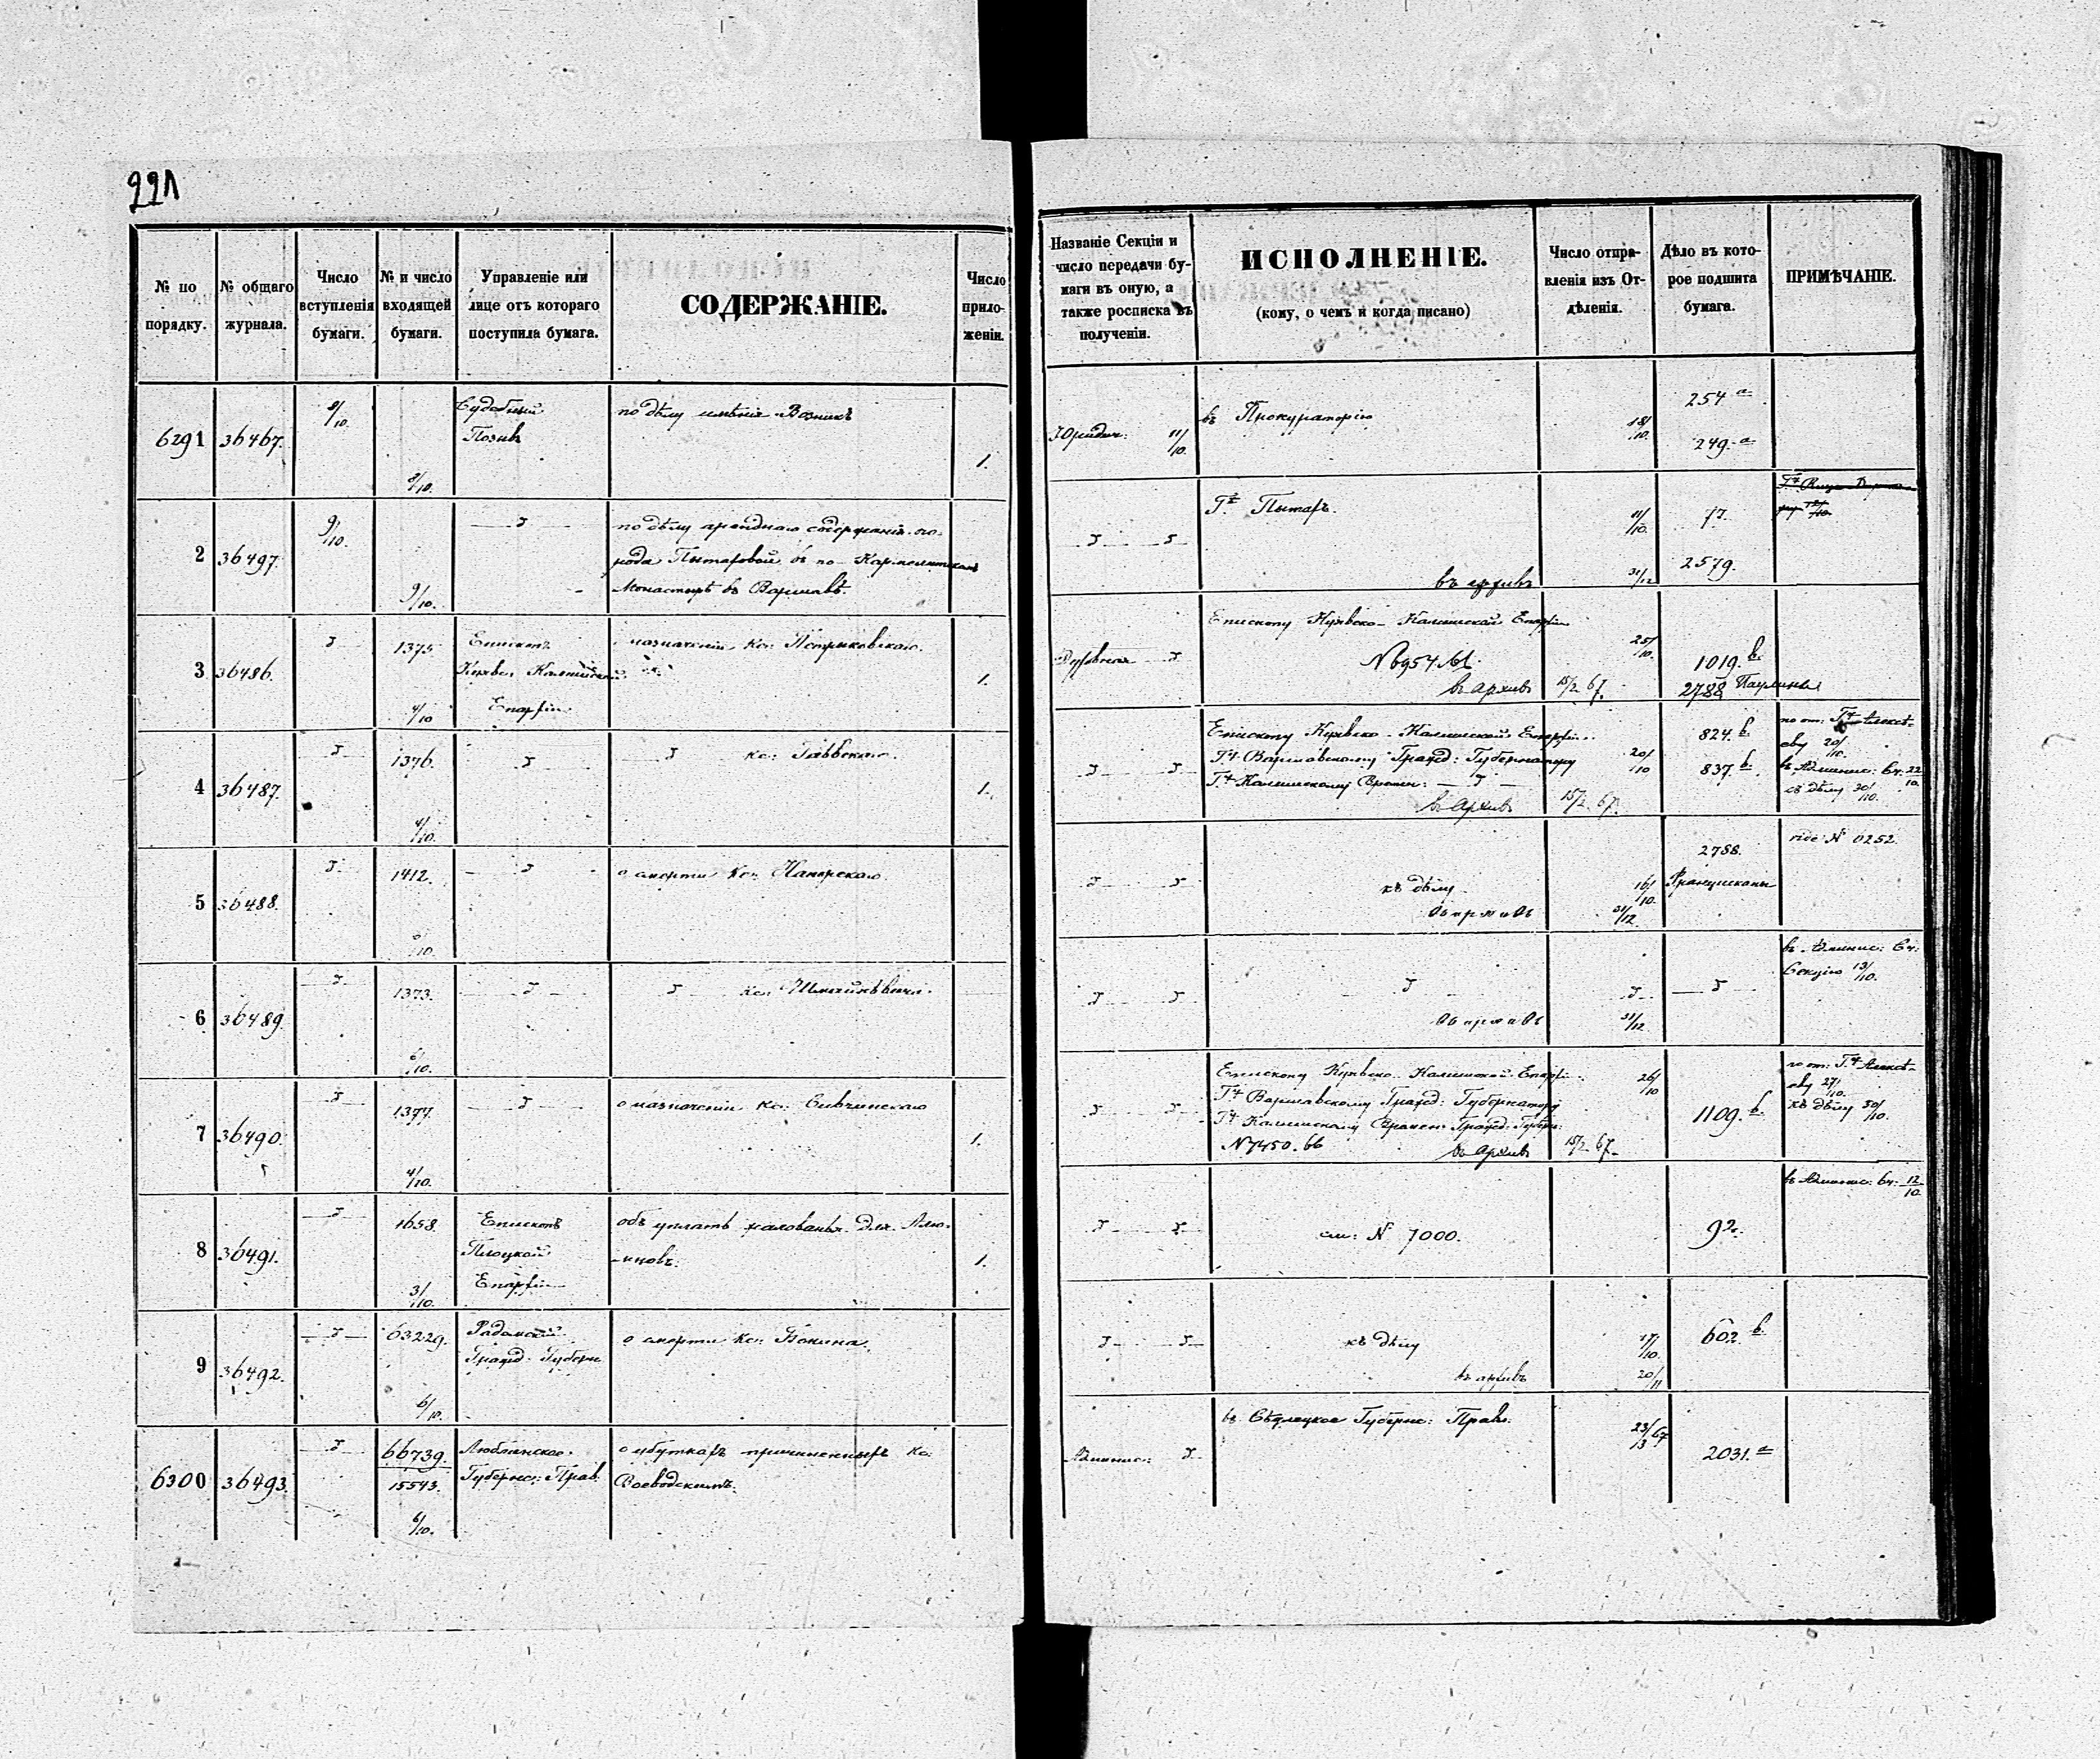 221
№ по порядку.
№ общаго журнала.
Число вступленія бумаги.
№ и число входящей бумаги.
Управленіе или лице отъ котораго поступила бумага.
СОДЕРЖАНІЕ.
Число приложеніи.
Названіе Секціи и число передачи бумаги въ оную, а также росписка въ полученіи.
ИСПОЛНЕНІЕ.
(кому, о чемъ и когда писано)
Число отправленія изъ Отдѣленія.
Дѣло въ которое подшита бумага.
ПРИМѢЧАНІЕ.
6291 36467. 8/10. 8/10. Судебный Позывъ
по дѣлу имѣнія Возникъ
1.
Юридич: 11/10.
въ Прокураторію
18/10.
254 а
249. а
2 36497. 9/10. 9/10.
по дѣлу аренднаго содержанія ого-
рода Пытаровой въ по-Кармелитскомъ
Монастырѣ въ Варшавѣ.
Гѣ Пытаръ.
11/10.
въ архивъ 31/12
77.
2579.
3 36486. 1375 4/10
Епископъ
Куявс. Калишской
Епархіи
о назначеніи Кс: Пстрыковскаго.
1.
Духовная
Епископу Куявско-Калишской Епархіи
25/10.
N6954.66.
въ Архивъ 15/2 67.
1019. b.
2788 Паулины
4 36487. 1376. 4/10.
кс:
1.
Епископу Куявско-Калишской Епархіи.
Гу Варшавскому Гражд: Губернатору
Гу Калишскому Времен:
20/10
въ Архивъ 15/2 67.
824. b.
837. b.
по от: Гу Алексѣ-
еву 20/10.
въ Админис: Сч: 22/10.
къ дѣлу 30/10.
5 36488. 1412. /10.
о смерти Кс:
къ дѣлу 16/10.
въ архивъ 31/12
2788.
Францискане
vide N 6252.
6 36489. 1373. 6/10.
кс:
въ архивъ 31/12.
въ Админис: Сч:
Секцію 13/10.
7 36490. 1377. 4/10.
о назначеніи Кс: Сивчинскаго
1.
Епископу Куявско-Калишской Епархіи.
Гу Варшавскому Гражд: Губернатору
Гу Калишскому Времен: Гражд: Губерн:
N7450.66 въ Архивъ 15/2 67.
26/10
1109. b.
по от: Гу Алексѣ-
еву 27/10.
къ дѣлу 30/10.
8 36491. 1658. 3/10.
Епископъ
Плоцкой
Епархіи
объ уплатѣ жалованья для Алю-
мновъ.
1.
см: N 7000.
92.
въ Админис: Сч: 12/10.
9 36492. 63229. 6/10.
Радомскій
Гражд. Губерн.
о смерти Кс: Бокина.
къ дѣлу 17/10.
въ архивъ 20/11
602. b.
6300 36493. 66739. 15543. 6/10.
Люблинское
Губернс: Прав.
о убыткахъ причиненныхъ Кс:
Воеводскимъ.
Админис:
въ Сѣдлецкое Губернс: Правл.
23/13 67
2031. а